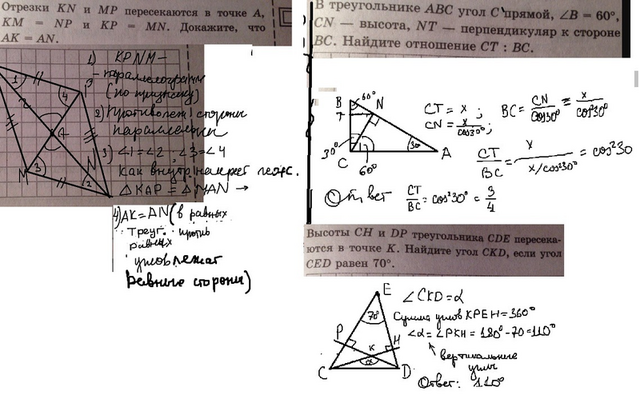 Отрезки KN и MP пересекаются в точке A,
KM = NP и KP = MN. Докажите, что
AK = AN.
1) KPNM –
– параллелограмм
(по признаку)
2) Противолеж стороны
параллельны
3) ∠1=∠2, ∠3=∠4
как внутр накрест леж.
△KAP = △MAN →
4) AK = AN (в равных
треуг. против
равных
углов лежат
равные стороны)
1
P
4
A
M
3
N
2
В треугольнике ABC угол C прямой, ∠B = 60°,
CN — высота, NT — перпендикуляр к стороне
BC. Найдите отношение CT : BC.
B 60° N
T
30°
C
60°
30°
A
CT = x ; BC = CN/cos30° = x/cos²30°
CN = x/cos30° ;
CT/BC = x/(x/cos²30°) = cos²30
Ответ CT/BC = cos²30° = 3/4
Высоты CH и DP треугольника CDE пересека-
ются в точке K. Найдите угол CKD, если угол
CED равен 70°.
E
70°
P
H
K
α
C
D
∠CKD = α
Сумма углов KPEH = 360°
∠α = ∠PKH = 180° - 70 = 110°
вертикальные
углы
Ответ: 110°